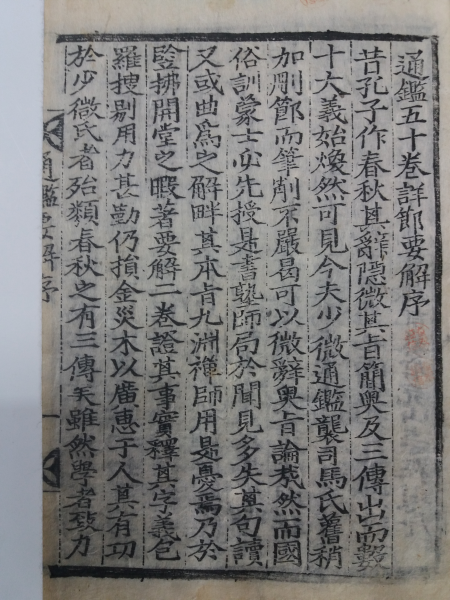 通鑑五十卷詳節要解序
昔孔子作春秋其辭隱微其旨簡奧及三傳出而數
十大義始煥然可見今夫少微通鑑襲司馬氏舊稍
加刪節而筆削不嚴曷可以微辭奧旨論哉然而國
俗訓蒙士必先授是書塾師局於聞見多失其句讀
又或曲爲之解畔其本旨九淵禪師用是憂焉乃於
豎拂開堂之暇著要解二卷證其事實釋其字義包
羅搜剔用力甚勤仍捐金災木以廣惠于人其有功
於少微氏者殆類春秋之有三傳矣雖然學者致力
通鑑要解序 一